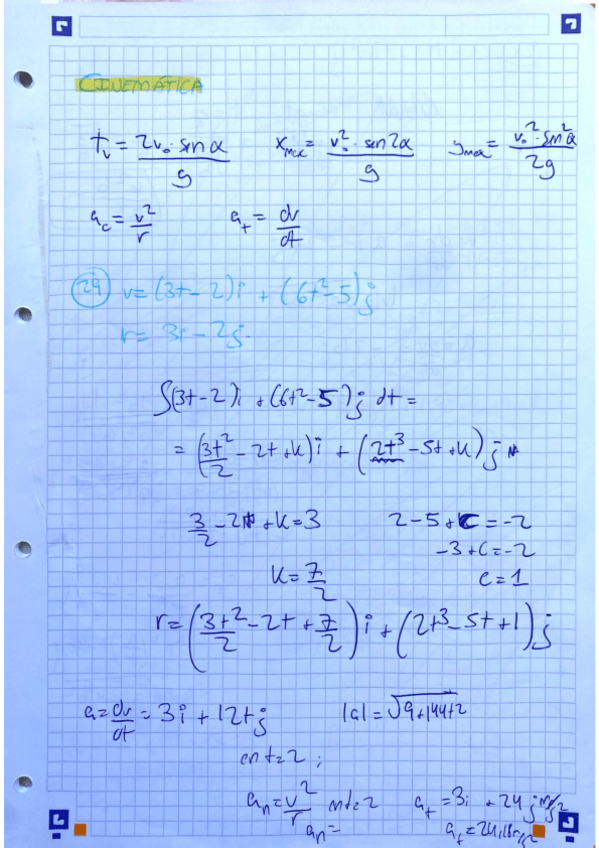 CINEMÁTICA
t_v = 2v₀·sen α / g    x_max = v₀²·sen 2α / g    y_max = v₀²·sen²α / 2g
a_c = v²/r    a_t = dv/dt
29 v = (3t - 2)i + (6t² - 5)j
r = 3i - 2j
∫(3t - 2)i + (6t² - 5)j dt =
= (3t²/2 - 2t + k)i + (2t³ - 5t + k)j
3/2 - 2 + k = 3    2 - 5 + C = -2
-3 + C = -2
k = 7/2    C = 1
r = (3t²/2 - 2t + 7/2)i + (2t³ - 5t + 1)j
a = dv/dt = 3i + 12tj    |a| = √9+144t2
en t = 2;
a_n = v²/r  en t = 2    a_t = 3i + 24j
a_n =